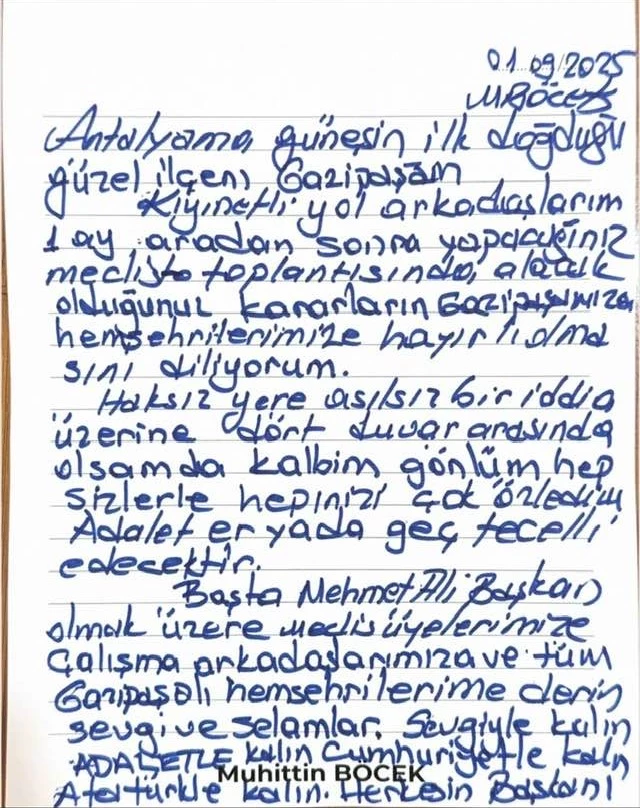 01.09/2025
M.BÖCEK
Antalyama, güneşin ilk doğduğu
güzel ilçem Gazipaşam
Kıymetli yol arkadaşlarım
1 ay aradan sonra yapacağınız
meclis toplantısında, alacak
olduğunuz kararların Gazipaşamıza
hemşehrilerimize hayırlı olma
sını diliyorum.
Haksız yere asılsız bir iddia
üzerine dört duvar arasında
olsamda kalbim gönlüm hep
sizlerle hepinizi çok özledim
Adalet er yada geç tecelli
edecektir.
Başta Mehmet Ali Başkan
olmak üzere meclis üyelerimize
Çalışma arkadaşlarımıza ve tüm
Gazipaşalı hemşehrilerime derin
sevgi ve selamlar. Sevgiyle kalın
ADALETLE kalın Cumhuriyetle kalın
Atatürkle kalın. Herkesin Başkanı
Muhittin BÖCEK